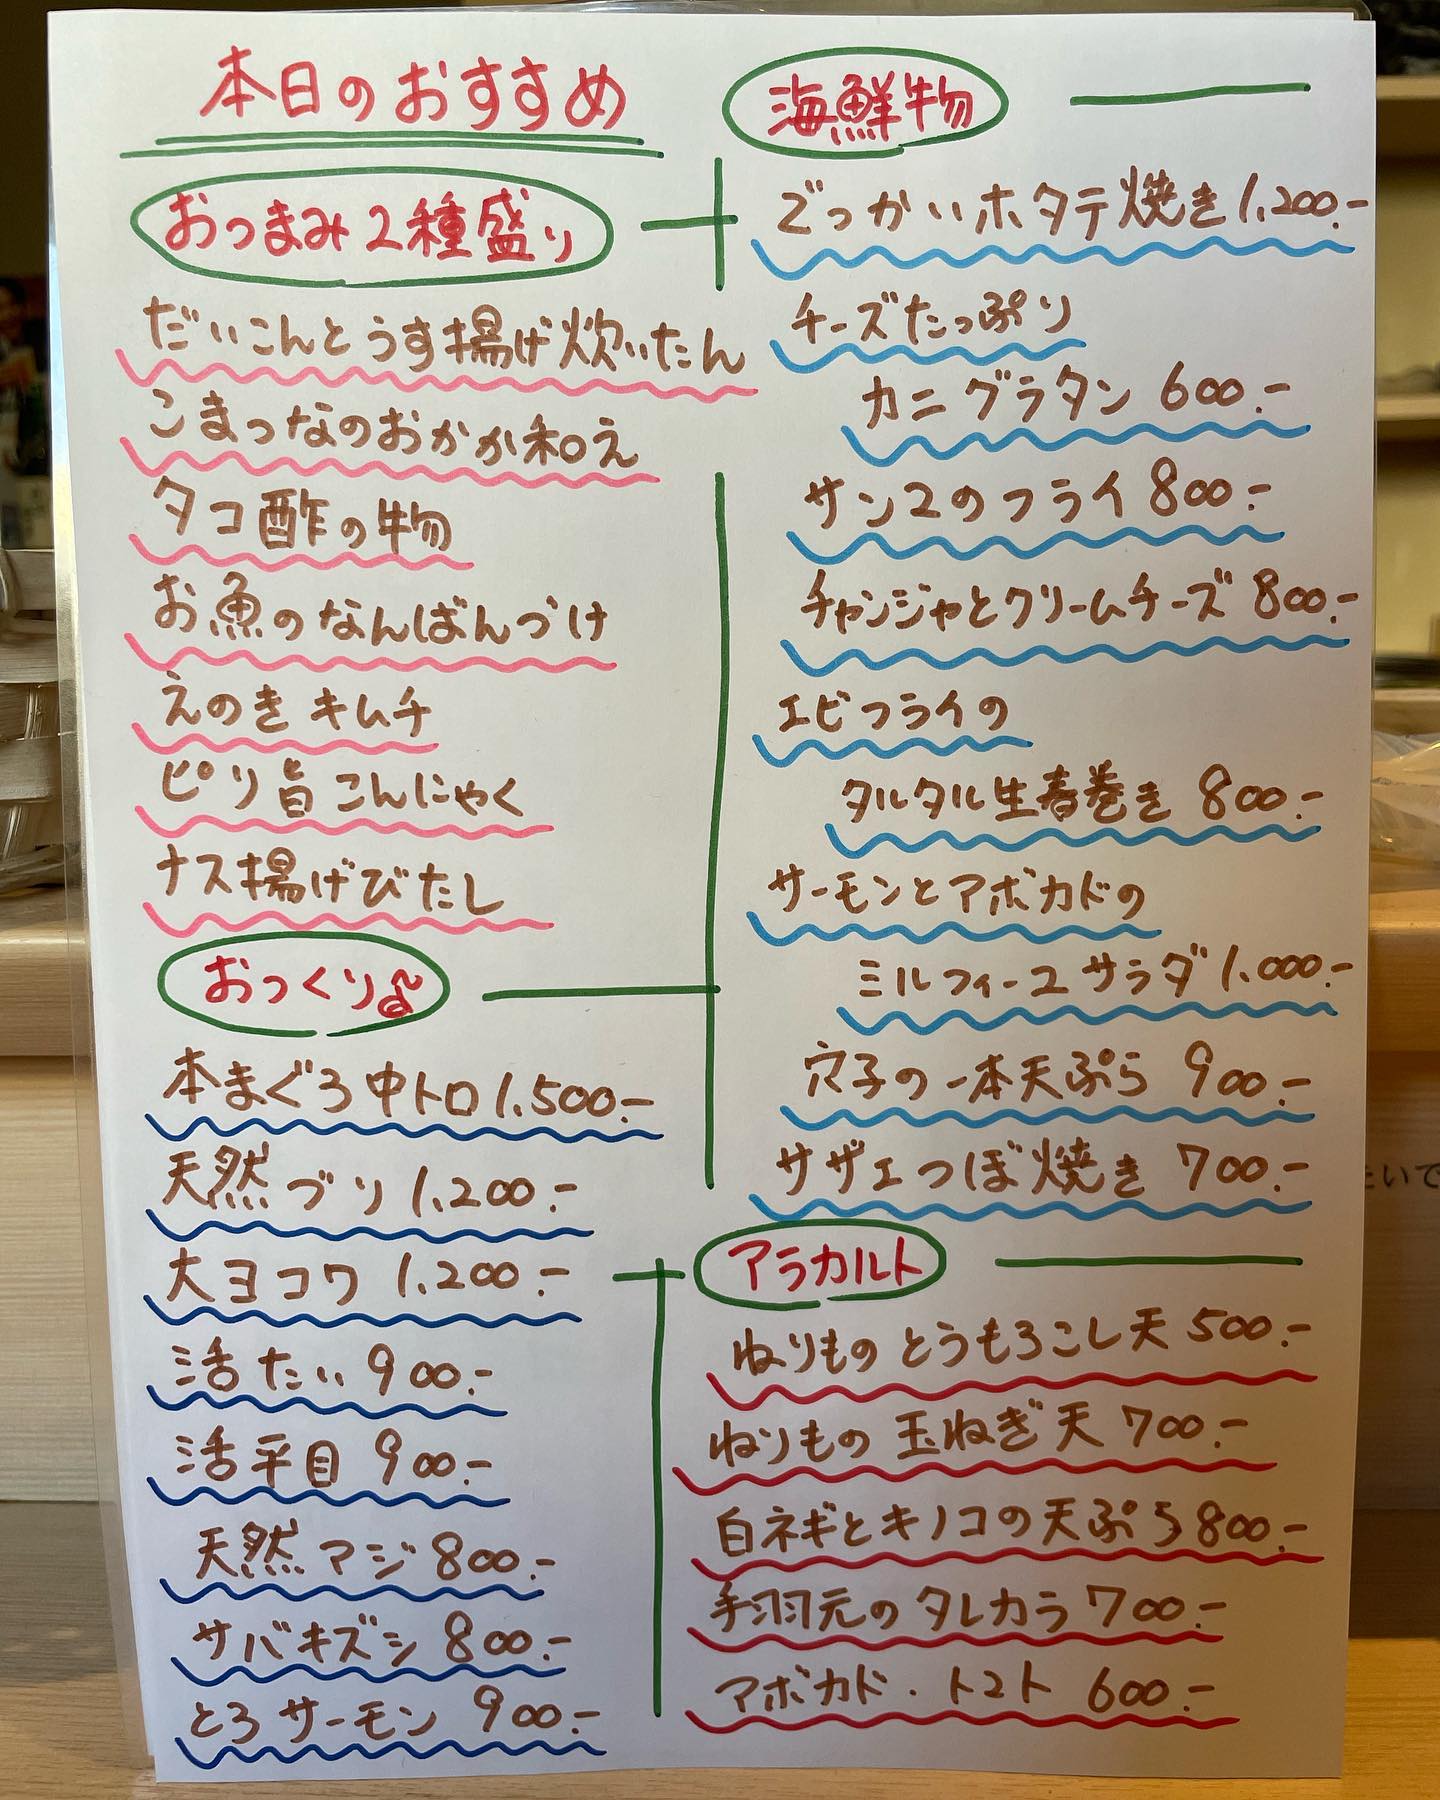 本日のおすすめ
おつまみ2種盛り
だいこんとうす揚げ炊いたん
こまつなのおかか和え
タコ酢の物
お魚のなんばんづけ
えのきキムチ
ピリ旨こんにゃく
ナス揚げびたし
おつくり♪
本まぐろ中トロ 1,500.-
天然ブリ 1,200.-
大ヨコワ 1,200.-
活たい 900.-
活平目 900.-
天然アジ 800.-
サバキズシ 800.-
とろサーモン 900.-
海鮮物
でっかいホタテ焼き 1,200.-
チーズたっぷり
カニグラタン 600.-
サンマのフライ 800.-
チャンジャとクリームチーズ 800.-
エビフライの
タルタル生春巻き 800.-
サーモンとアボカドの
ミルフィーユサラダ 1,000.-
穴子の一本天ぷら 900.-
サザエつぼ焼き 700.-
アラカルト
ねりもの とうもろこし天 500.-
ねりもの 玉ねぎ天 700.-
白ネギとキノコの天ぷら 800.-
手羽元のタレカラ 700.-
アボカド・トマト 600.-